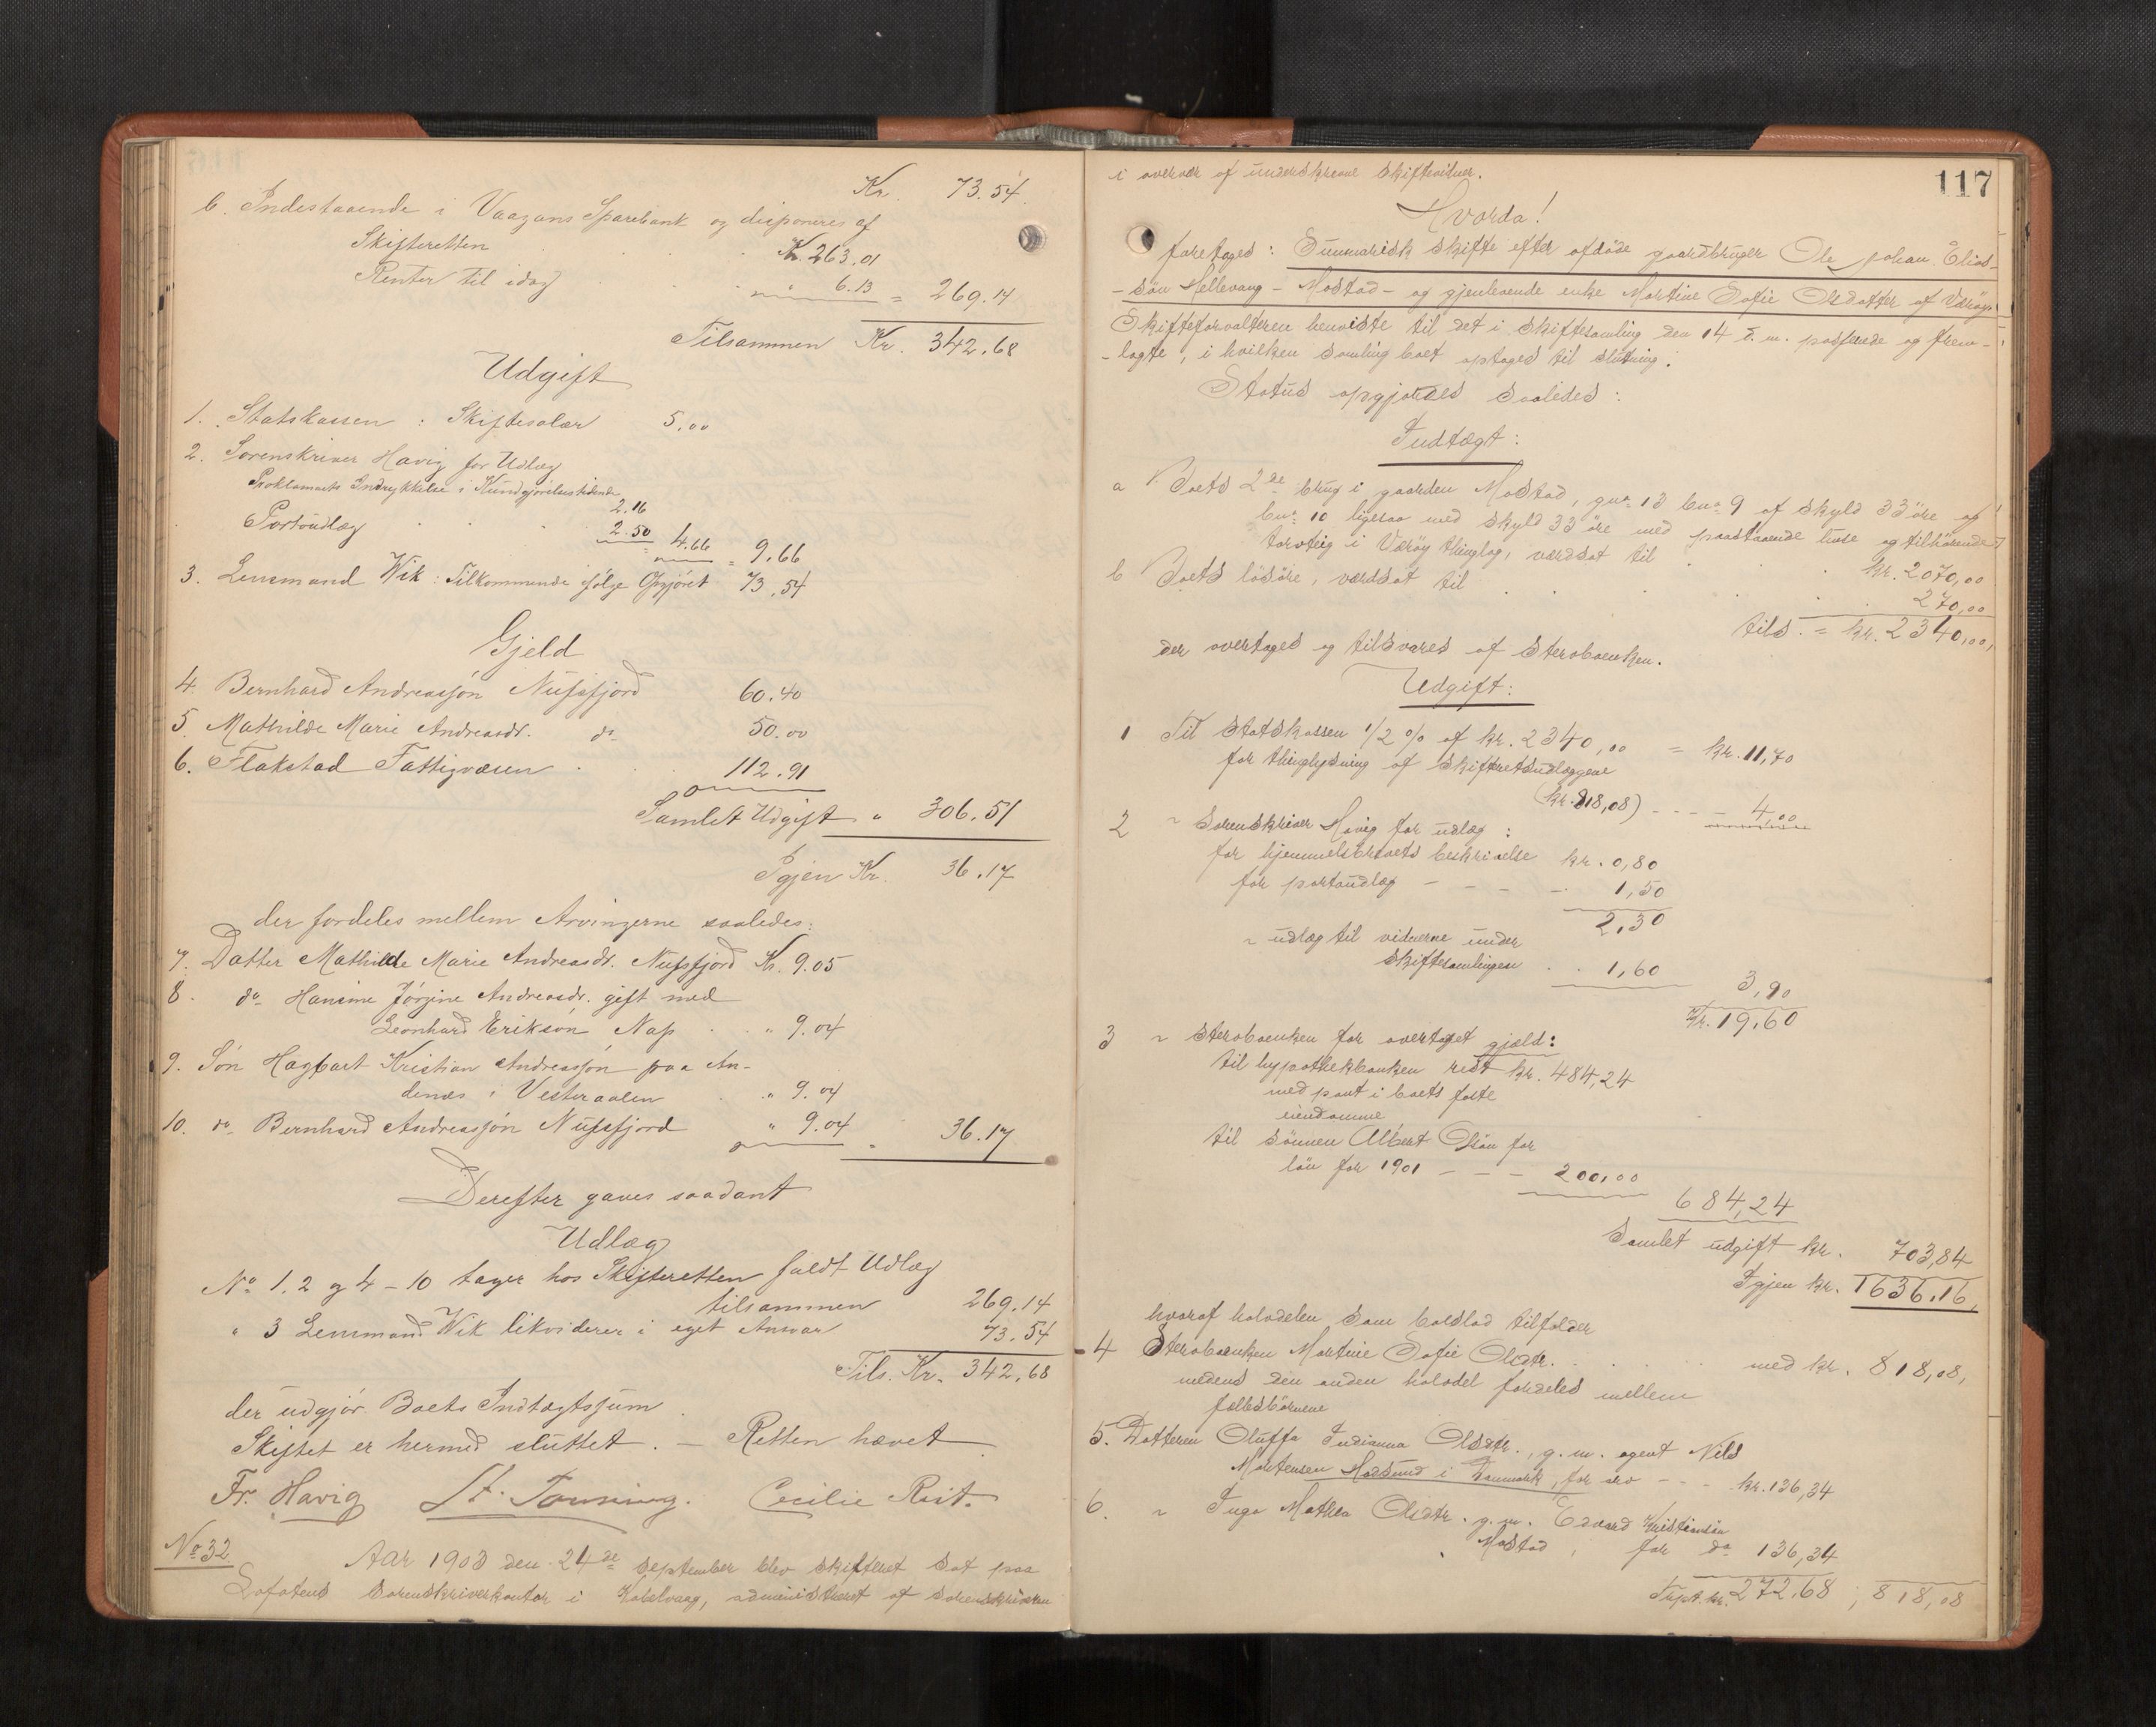 Kr. 73.54.
b. Indestaaende i Vaagans Sparebank og disponeres af
Skifteretten . . . Kr. 263.01
Renter til idag . . . " 6.13 = 269.14
Tilsammen Kr. 342.68
Udgift
1. Statskassen : Skiftesalær 5.00
2. Sorenskriver Havig for Udlæg
Proklamaets Indrykkelse i Kundgjørelsestidende
2.16
Portoudlæg . . . 2.50 = 4.66 = 9.66
3. Lensmand Wik : Tilkommende ifølge Opgjöret 73.54
Gjeld
4. Bernhard Andreassøn Nufsfjord 60.40
5. Mathilde Marie Andreasdr. do. 50.00
6. Flakstad Fattigvæsen . . 112.91
Samlet Udgift " 306.51
Igjen Kr. 36.17
der fordeles mellem Arvingerne saaledes:
7. Datter Mathilde Marie Andreasdr. Nufsfjord Kr. 9.05
8. do. Hansine Jørgine Andreasdr. gift med
Leonhard Erikson Nap . . " 9.04
9. Søn Hagbart Kristian Andreassøn paa An-
denæs i Vesteraalen . " 9.04
10. do. Bernhard Andreassøn Nufsfjord " 9.04 " 36.17
Derefter gaves saadant
Udlæg
No 1, 2 og 4 - 10 tager hos Skifteretten fuldt Udlæg
tilsammen 269.14
" 3 Lensmand Wik likviderer i eget Ansvar 73.54
Tils. Kr. 342.68
der udgjør Boets Indtægtssum
Skiftet er hermed sluttet. — Retten hævet.
Fr. Havig Cecilie Rist.
No 32 Aar 1903 den 24de september blev skifteret sat paa
Lofotens Sorenskriverkontor i Kabelvaag, administreret af sorenskriveren
117
i overvær af underskrevne skiftevidner.
Hvorda!
foretoges : Summarisk skifte efter afdöde gaardbruger Ole Johan Elias-
-sön Hellevang - Mostad - og gjenlevende enke Martine Sofie Olsdatter af Væröy.
Skifteforvalteren henviste til det i skiftesamling den 14 d.m. passerede og frem-
-lagte, i hvilken samling boet optoges til slutning.
Status opgjordes saaledes :
Indtægt :
a Boets 2de brug i gaarden Mostad, gno. 13 bno. 9 af skyld 33 öre og
bno. 10 ligesaa med skyld 33 öre med paastaaende huse og tilhörende
torvteig i Væröy thinglag, værdsat til . kr. 2070,00
b Boets lösöre, værdsat til . . . . 270,00
tils. = kr. 2340,00,
der overtages og tilsvares af Sterboenken.
Udgift:
1 Til statskassen 1/2 % af kr. 2340,00 = kr. 11,70
for thinglysning af skifteretsudlæggene
(kr. 818,08) - - - 4,00
2 " Sorenskriver Havig for udlæg :
for hjemmelsbrevets beskrivelse kr. 0,80
for portoudlæg - - - 1,50
2,30
" udlæg til vidnerne under
skiftesamlingen . . 1,60 3,90
Kr. 19,60
3 " Sterboenken for overtaget gjæld:
til hypothekbanken rest kr. 484,24
med pant i boets faste
eiendomme
til sönnen Albert Olsön for
lön for 1901 - - - 200,00
684,24
Samlet udgift kr. 703,84
Igjen kr. 1636,16,
hvoraf halvdelen som boeslod tilfalder
4 Sterboenken Martine Sofie Olsdtr. . . . med kr. 818,08,
medens den anden halvdel fordeles mellem
fællesbörnene
5. Datteren Oluffa Indianna Olsdtr., g.m. agent Nils
Mortensen Hadsund i Danmark, for arv - - kr. 136,34
6. " Inga Mathea Olsdtr. g.m. Edvard Kristiansön
Mostad, for do 136,34
Trspt. kr. 272,68 ; 818,08